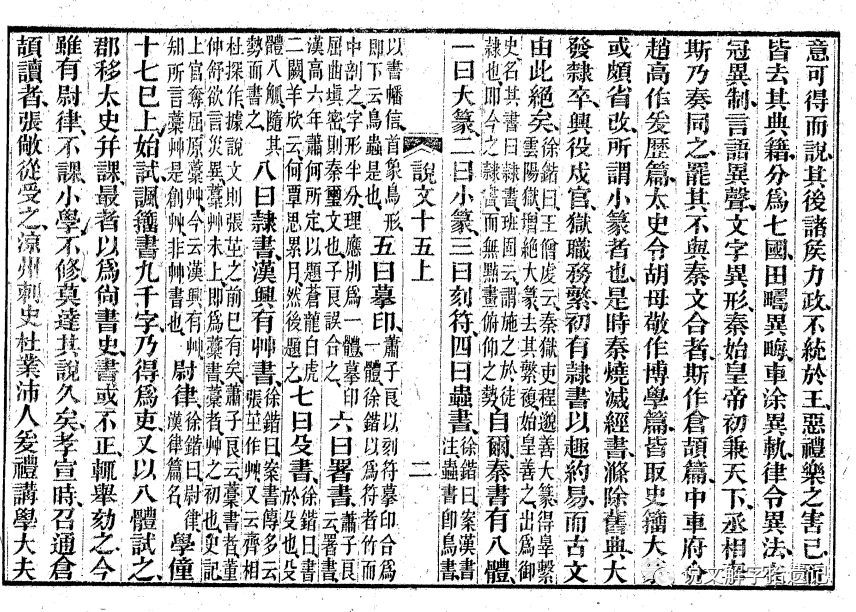 意可得而說其後諸矦力政不統於王惡禮樂之害己而
皆去其典籍分爲七國田疇異畮車涂異軌律令異法
冠異制言語異聲文字異形秦始皇帝初兼天下丞相李
斯乃奏同之罷其不與秦文合者斯作倉頡篇中車府令
趙高作爰歷篇太史令胡母敬作博學篇皆取史籒大篆
或頗省改所謂小篆者也是時秦燒滅經書滌除舊典大
發隸卒興役戍官獄職務繁初有隸書以趣約易而古文
由此絕矣徐鍇曰王僧虔云秦獄吏程邈善大篆得辠繫雲陽獄增減大篆去其繁複始皇善之出爲御
史名其書曰隸書班固云謂施之於徒隸也即今之隸書而無點畫俯仰之勢自爾秦書有八體
一曰大篆二曰小篆三曰刻符四曰蟲書徐鍇曰案漢書注蟲書即鳥書
說文十五上 二
以書幡信首象鳥形即下云鳥蟲是也五曰摹印蕭子良以刻符摹印合爲一體徐鍇以爲符者竹而
中剖之字形半分理應別爲一體摹印屈曲塡密則秦璽文也子良誤合之六曰署書蕭子良云署書
漢高六年蕭何所定以題蒼龍白虎二闕羊欣云何覃思累月然後題之七曰殳書徐鍇曰書於殳也殳
體八觚隨其勢而書之八曰隸書漢興有艸書徐鍇曰案書傳多云張芝作艸又云齊相
杜探作據說文則張芝之前已有矣蕭子良云藁書者董仲舒欲言災異藁艸未上即爲藁書藁者艸之初也史記
上官奪屈原藁艸今云漢興有艸知所言藁艸是創艸非艸書也尉律徐鍇曰尉律漢律篇名學僮
十七已上始試諷籒書九千字乃得爲吏又以八體試之
郡移太史幷課最者以爲尙書史書或不正輒舉劾之今
雖有尉律不課小學不修莫達其說久矣孝宣時召通倉
頡讀者張敞從受之涼州刺史杜業沛人爰禮講學大夫
说文解字拾遗记